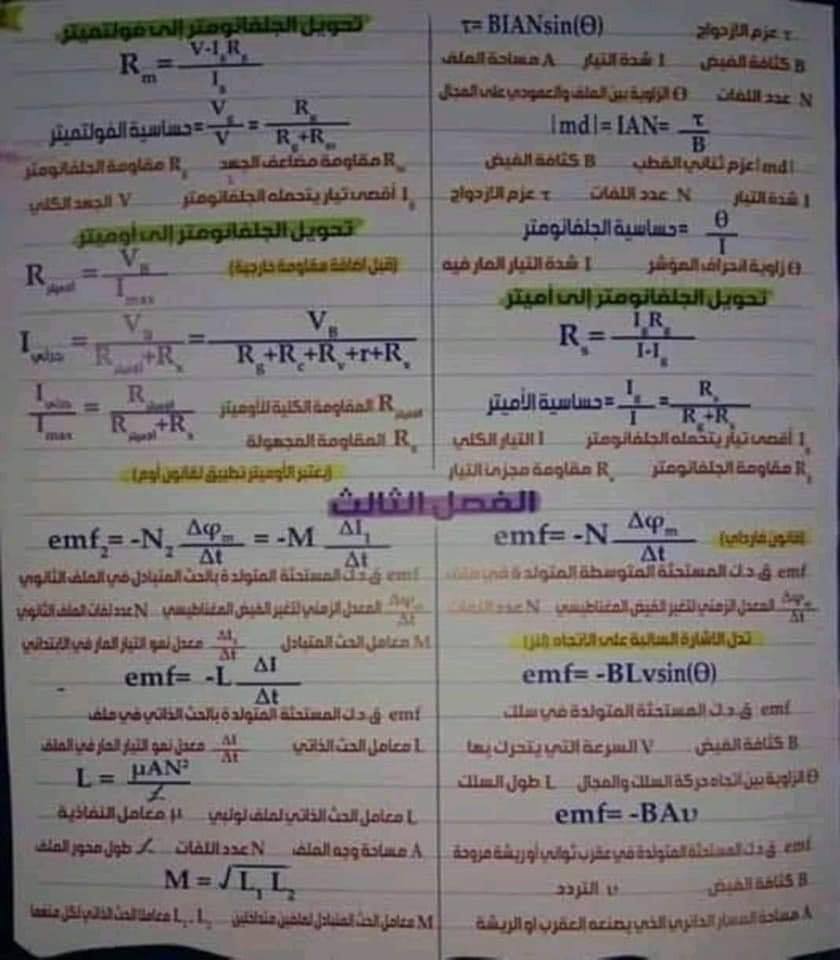 τ= BIANsin(Θ)
τ عزم الازدواج
B كثافة الفيض I شدة التيار A مساحة الملف
N عدد اللفات Θ الزاوية بين الملف والعمودي على المجال
|md|= IAN= τ/B
|md| عزم ثنائي القطب B كثافة الفيض
I شدة التيار N عدد اللفات τ عزم الازدواج
حساسية الجلفانومتر= Θ/I
Θ زاوية انحراف المؤشر I شدة التيار المار فيه
تحويل الجلفانومتر إلى أميتر
Rs= IgRg/I-Ig
حساسية الأميتر= Ig/I = Rs/Rg+Rs
Ig أقصى تيار يتحمله الجلفانومتر I التيار الكلي
Rg مقاومة الجلفانومتر Rs مقاومة مجزئ التيار
تحويل الجلفانومتر إلى فولتميتر
Rm= V-IgRg/Ig
حساسية الفولتميتر= Vg/V = Rg/Rg+Rm
Rm مقاومة مضاعف الجهد Rg مقاومة الجلفانومتر
Ig أقصى تيار يتحمله الجلفانومتر V الجهد الكلي
تحويل الجلفانومتر إلى أوميتر
(قبل اضافة مقاومة خارجية)
Rاوميتر = VB/Imax
Iجزئي = VB/Rاوميتر+Rx = VB/Rg+Rc+Rv+r+Rx
Iجزئي/Imax = Rاوميتر/Rاوميتر+Rx
Rاوميتر المقاومة الكلية للأوميتر
Rx المقاومة المجهولة
(يعتبر الأوميتر تطبيق لقانون أوم)
الفصل الثالث
(قانون فارداي)
emf= -N Δφm/Δt
emf ق.د.ك المستحثة المتوسطة المتولدة في ملف
Δφm/Δt المعدل الزمني لتغير الفيض المغناطيسي N عدد اللفات
تدل الاشارة السالبة على الاتجاه (لنز)
emf= -BLvsin(Θ)
emf ق.د.ك المستحثة المتولدة في سلك
B كثافة الفيض V السرعة التي يتحرك بها
Θ الزاوية بين اتجاه حركة السلك والمجال L طول السلك
emf= -BAυ
emf ق.د.ك المستحثة المتولدة في عقرب ثواني أو ريشة مروحة
B كثافة الفيض υ التردد
A مساحة المسار الدائري الذي يصنعه العقرب او الريشة
emf2= -N2 Δφm/Δt = -M ΔI1/Δt
emf ق.د.ك المستحثة المتولدة بالحث المتبادل في الملف الثانوي
Δφm/Δt المعدل الزمني لتغير الفيض المغناطيسي N عدد لفات الملف الثانوي
M معامل الحث المتبادل ΔI1/Δt معدل نمو التيار المار في الابتدائي
emf= -L ΔI/Δt
emf ق.د.ك المستحثة المتولدة بالحث الذاتي في ملف
L معامل الحث الذاتي ΔI/Δt معدل نمو التيار المار في الملف
L = μAN²/ℓ
L معامل الحث الذاتي لملف لولبي μ معامل النفاذية
A مساحة وجه الملف N عدد اللفات ℓ طول محور الملف
M = √L1 L2
M معامل الحث المتبادل لملفين متداخلين L1 , L2 معاملا الحث الذاتي لكل منهما